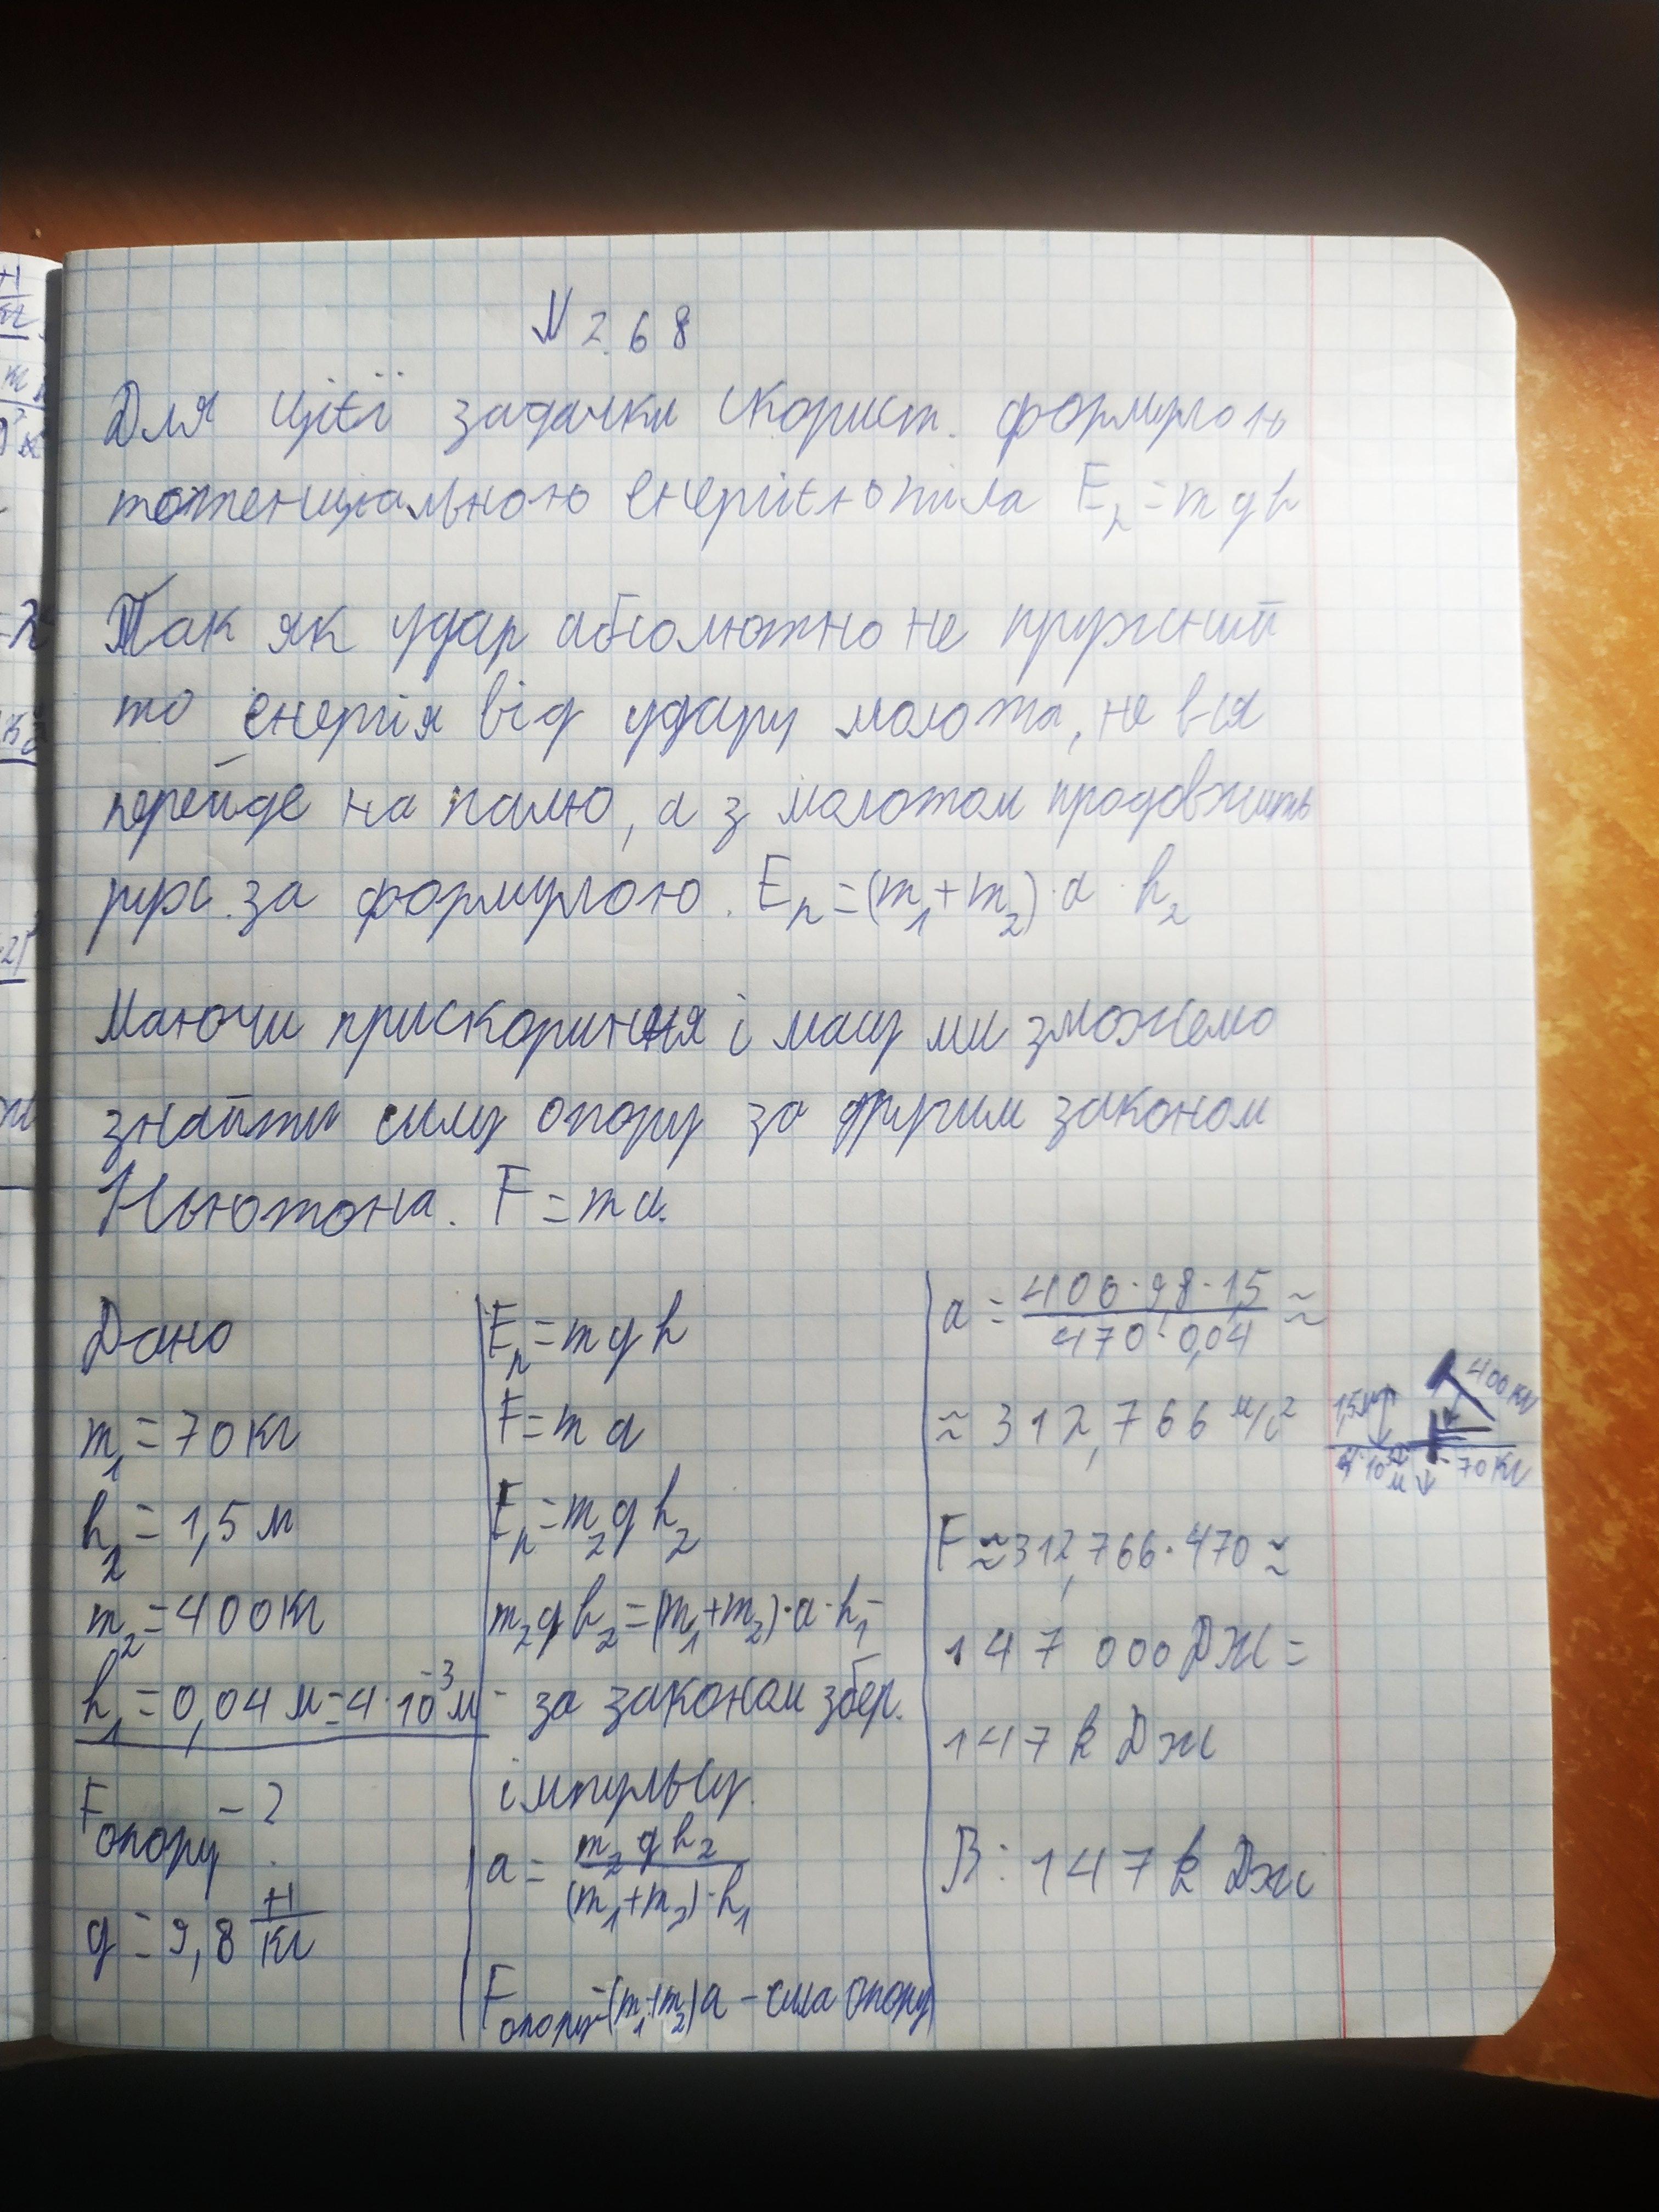 N 2.68
Для цієї задачки скорист. формулою
потенціальною енергією тіла Eп = mgh
Так як удар абсолютно не пружний
то енергія від удару молота, не вся
перейде на палю, а з молотом продовжить
рух. за формулою. Eп = (m1 + m2) · a · h2
Маючи прискориння і масу ми зможемо
знайти силу опору за другим законом
Ньютона. F = ma.
Дано
m1 = 70 кг
h2 = 1,5 м
m2 = 400 кг
h1 = 0,04 м = 4 · 10^-3 м
Fопору - ?
g = 9,8 Н/кг
Eп = mgh
F = ma
Eп = m2gh2
m2gh2 = (m1 + m2) · a · h1 -
- за законом збер.
імпульсу.
a = m2gh2 / (m1 + m2) · h1
Fопору = (m1 + m2)a - сила опору
a = 400 · 9,8 · 1,5 / 470 · 0,04 ≈
≈ 312,766 м/с²
F ≈ 312,766 · 470 ≈
147 000 Дж =
147 k Дж
В: 147 k Дж
400 кг
1,5 м
70 кг